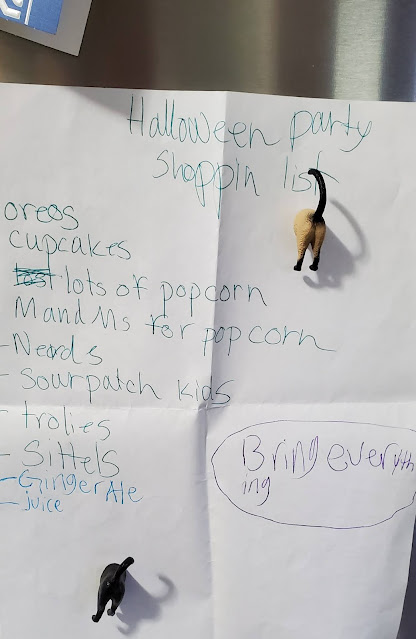 Halloween party
Shoppin list
oreos
cupcakes
lots of popcorn
M and Ms for popcorn
- Nerds
- Sourpatch kids
- trolies
- Sittels
- Ginger Ale
- juice
Bring everyth
ing